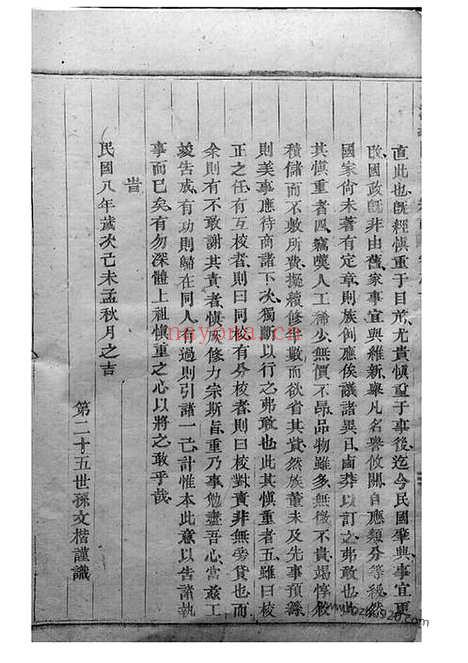 直此也旣經慎重于目前尤貴慎重于事後迄今民國肇興事宜更
改國政旣非由舊家事宜與維新舉凡名譽攸關自應類分等級然
國家尚未著有定章則族例應俟議諸異日鹵莽以訂之弗敢也此
其慎重者四竊獎人工稀少無價不昂品物雖多無徵不貴竭惇敘
積儲而不敷所費擬續修之數而欲省其貲然族董未及先事預籌
則美事應待商諸下次獨斷以行之弗敢也此其慎重者五雖曰校
正之任有互校者則曰同校有分校者則曰校對責非無旁貸也而
余則有不敢謝其責者慎族修力宗斯旨重乃事勉盡吾心當茲工
竣告成有功則歸在同人有過則引諸一己計惟本此意以告諸執
事而已矣有勿深體上祖慎重之心以將之敢乎哉
旹
民國八年歲次己未孟秋月之吉
第二十五世孫文楷謹識
nayona.cn